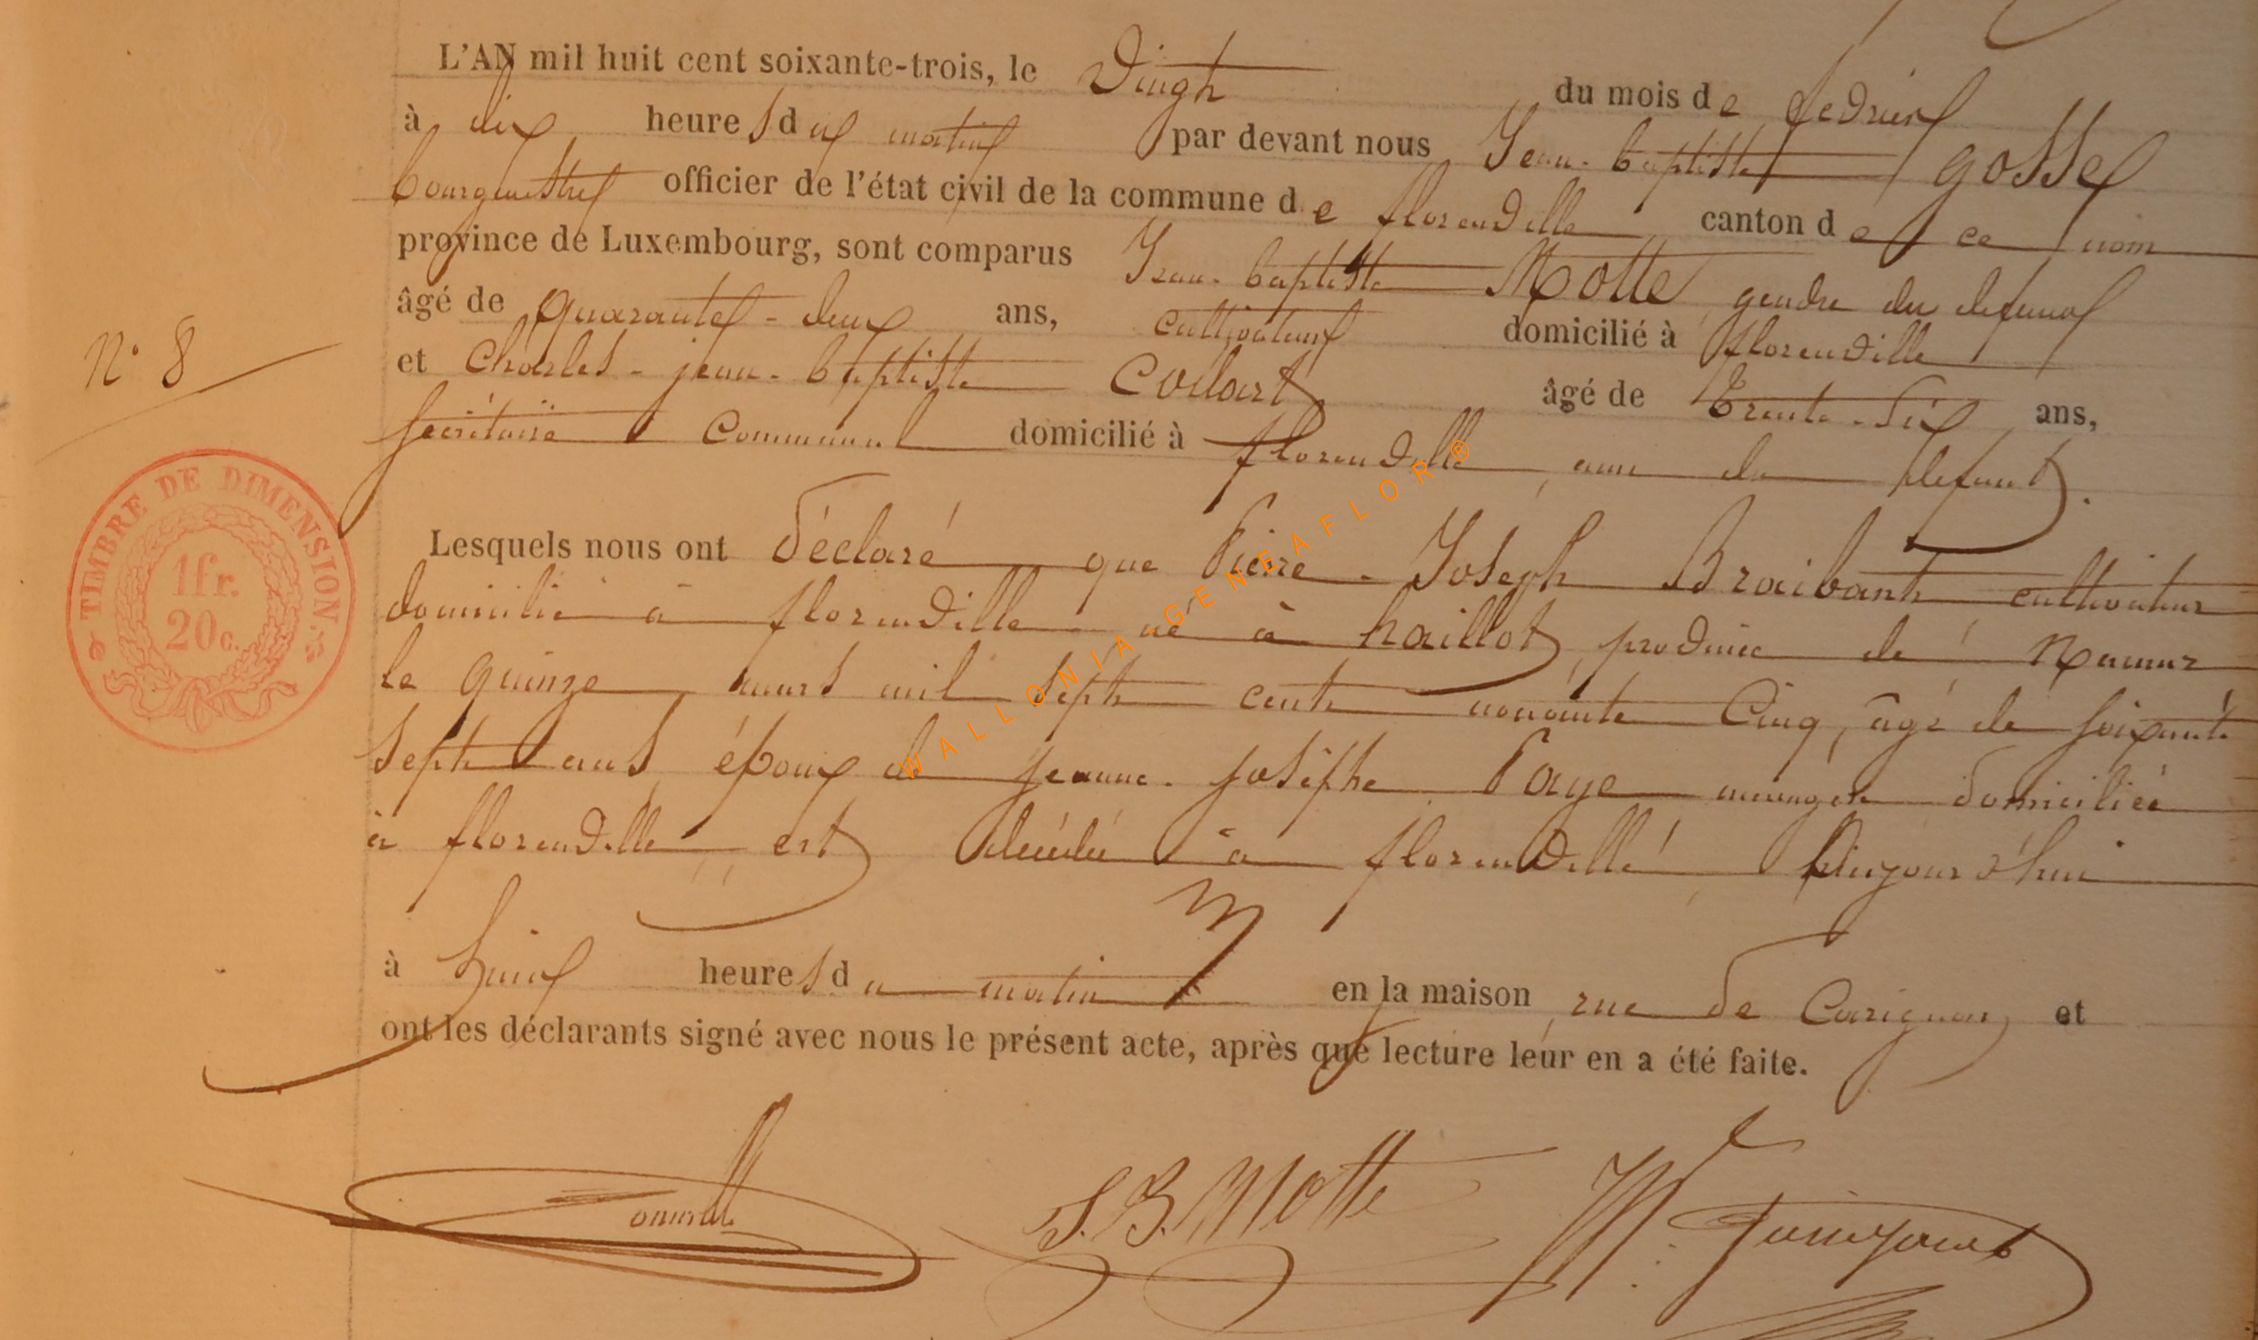 L'AN mil huit cent soixante-trois, le Vingt du mois de fevrier
à dix heures du matin par devant nous Jean-baptiste gosse
bourgmestre officier de l'état civil de la commune de florenville canton de ce nom
province de Luxembourg, sont comparus Jean-baptiste Motte gendre du defunt
âgé de quarante-deux ans, cultivateur domicilié à florenville
et Charles-jean-baptiste Collart âgé de trente-six ans,
Secrétaire Communal domicilié à florenville, ami du defunt.
N° 8
TIMBRE DE DIMENSION.
1fr.
20c.
Lesquels nous ont déclaré que Pierre-Joseph Braibant cultivateur
domicilié à florenville né à haillot, province de Namur
le quinze mars mil sept cent nonante Cinq, âgé de soixante
sept ans, époux de jeanne-josèphe Paye menagère domiciliée
à florenville, est décédé à florenville, aujourd'hui
à huit heures du matin en la maison, rue de Carignan, et
ont les déclarants signé avec nous le présent acte, après que lecture leur en a été faite.
J. B. Motte
WALLONIA GENEAFLOR ®